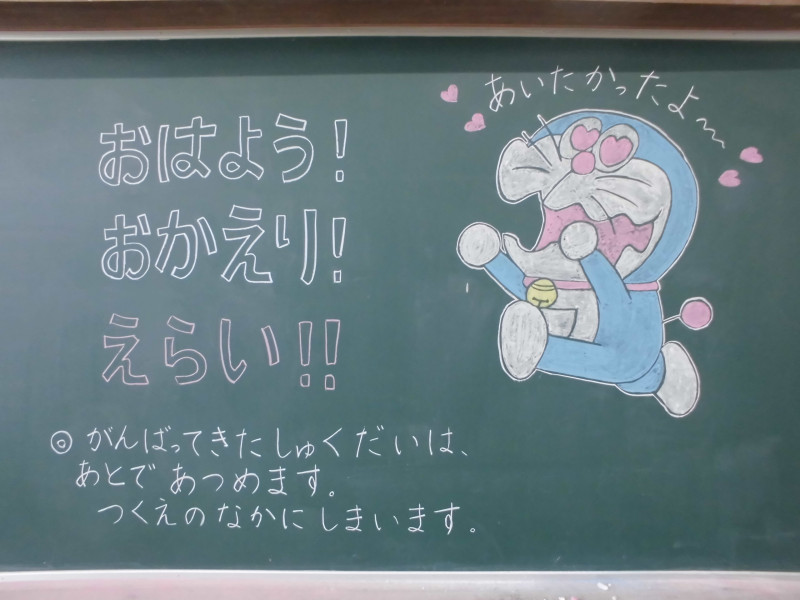 おはよう!
おかえり!
えらい!!
あいたかったよ〜
◎がんばってきたしゅくだいは、
あとであつめます。
つくえのなかにしまいます。